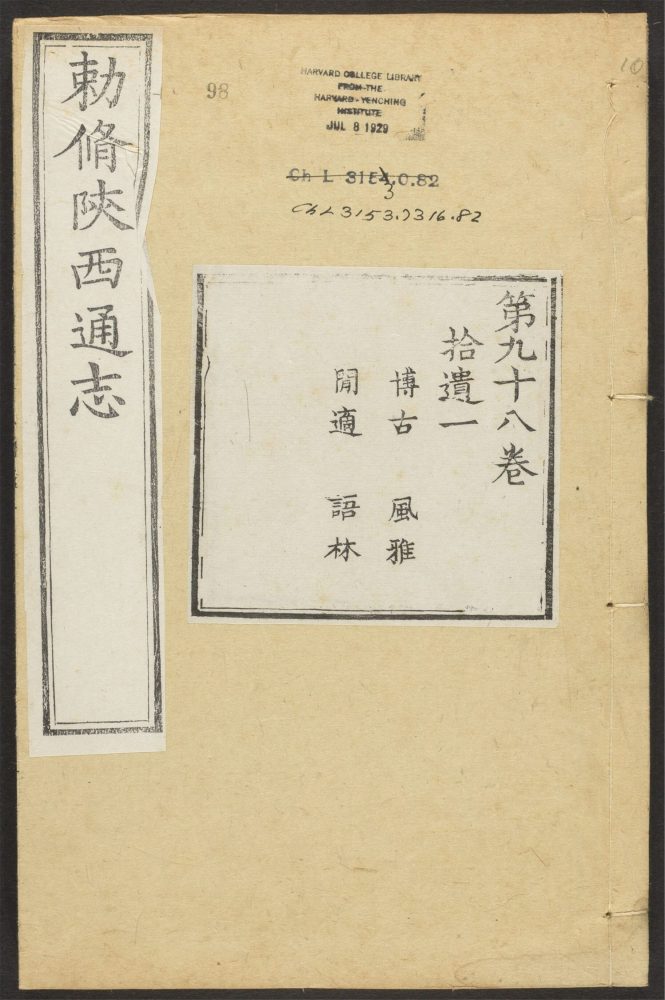 勅脩陝西通志
98
10
HARVARD COLLEGE LIBRARY
FROM THE
HARVARD-YENCHING
INSTITUTE
JUL 8 1929
Ch L 3154.0.82
3
ChL3153.7316.82
第九十八卷
拾遺一
博古 風雅
閒適 語林